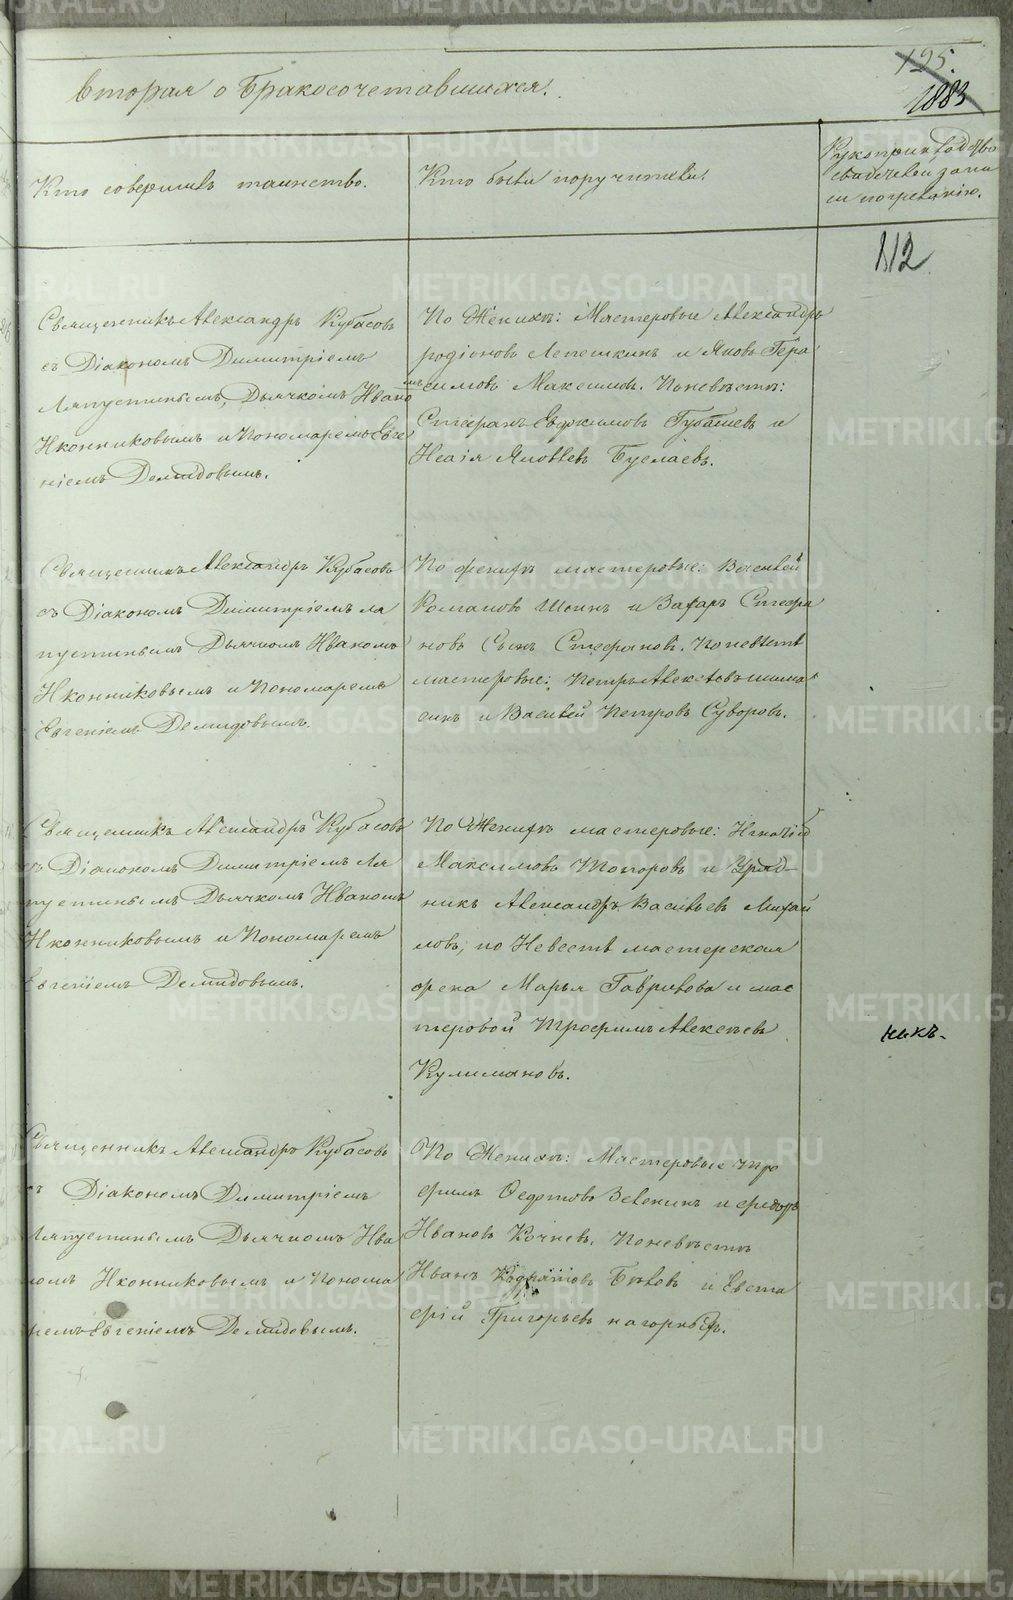 вторая о Бракосочетавшихся.
125.
1883
Кто совершилъ таинство.
Кто были поручители.
Рукоприкладство
свидѣтелей записи
по желанію.
112
Священникъ Александръ Кубасовъ
съ Діакономъ Димитріемъ
Ляпустинымъ, Дьячкомъ Иваномъ
Иконниковымъ и Пономаремъ Евге
ніемъ Демидовымъ.
По Женихѣ: Мастеровые Александръ
родіоновъ Лепешкинъ и Яковъ Гера
симовъ Максимов. По невѣстѣ:
Стефанъ Евдокимовъ Губашевъ и
Исаія Яковлевъ Буслаевъ.
Священникъ Александръ Кубасовъ
съ Діакономъ Димитріемъ ля
пустинымъ Дьячкомъ Иваномъ
Иконниковымъ и Пономаремъ
Евгеніемъ Демидовымъ.
По женихѣ мастеровые: Василей
Романовъ Шеинъ и Захаръ Стефа
новъ Сынъ Стефановъ. По невѣстѣ
мастеровые: Петръ Алексѣевъ
и Василей Петровъ Суворовъ.
Священникъ Александръ Кубасовъ
съ Діакономъ Димитріемъ Ля
пустинымъ Дьячкомъ Иваномъ
Иконниковымъ и Пономаремъ
Евгеніемъ Демидовымъ.
По Женихѣ мастеровые: Игнатій
Максимовъ Топоровъ и Уряд-
никъ Александръ Васильевъ Михай
ловъ, по Невестѣ мастерская
жена Марья Гаврилова и мас
теровой Трофимъ Алексѣевъ
Кулимановъ.
никъ.
Священникъ Александръ Кубасовъ
съ Діакономъ Димитріемъ
Ляпустинымъ Дьячкомъ Ива
номъ Иконниковымъ и Понома
ремъ Евгеніемъ Демидовымъ.
По Женихѣ: Мастеровые Тро
фимъ Федотовъ Зевекинъ и федоръ
Ивановъ Кочнев. По невѣстѣ
Иванъ Кодратовъ Бѣлевъ и Евста
фій Григорьевъ нагорныхъ.
METRIKI.GASO-URAL.RU